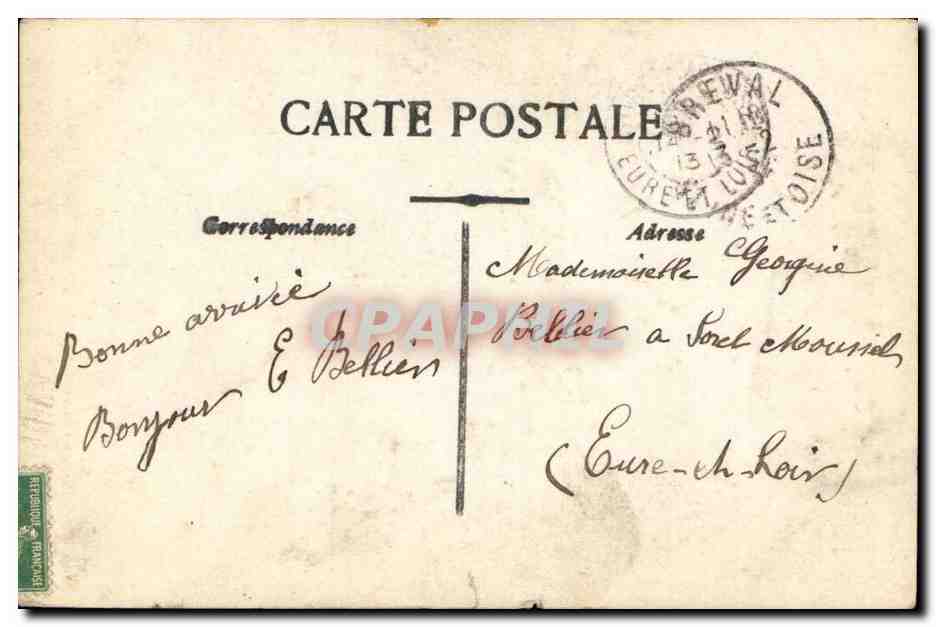 CARTE POSTALE
BREVAL
EURE ET LOIR
ET OISE
13
Correspondance
Adresse
Bonne arrivée
Bonjour E Bellier
Mademoiselle Georgine
Bellier a Sorel Moussel
(Eure-et-Loir)
REPUBLIQUE FRANÇAISE
CPAPHIL